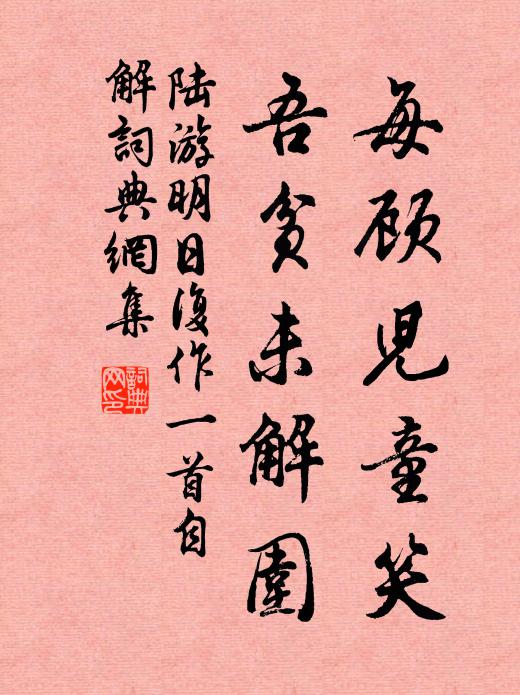 每顾児童笑
吾貧未解圍
陆游明日復作一首自
解詞典網集
詞典
网印